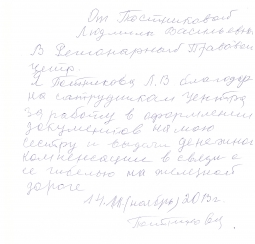 От Постниковой
Людмила Васильевны
В Региональный Правовой
Центр.
Я Постникова Л.В благодар
на сотрудникам центра
за работу в оформлении
документов на мою
сестру и выдачи денежной
компенсации в связи с
её гибелью на железной
дороге
14.11 (ноябрь) 2013г.